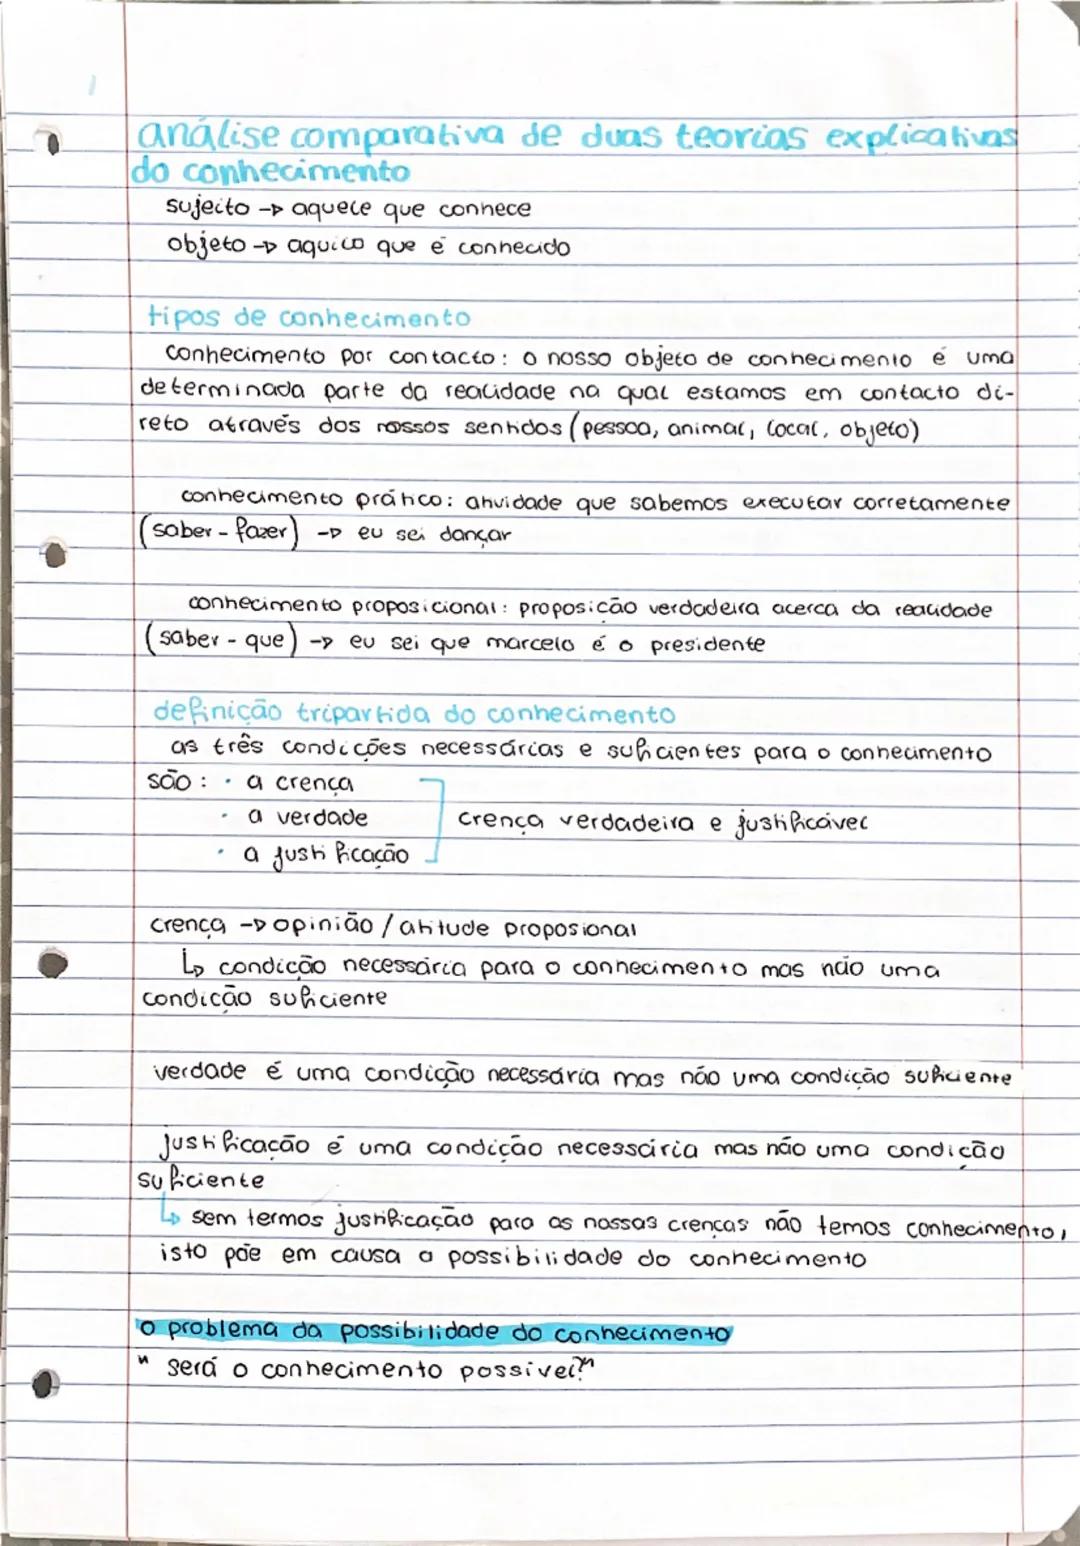 análise comparativa de duas teorias explicativas
do conhecimento
sujeito → aquele que conhece
objeto → aquilo que é conhecido
tipos de conhecimento
conhecimento por contacto: o nosso objeto de conhecimento é uma
determinada parte da realidade na qual estamos em contacto di-
reto através dos nossos sentidos (pessoa, animal, local, objeto)
conhecimento prático: atividade que sabemos executar corretamente
(saber-fazer) → eu sei dançar
conhecimento proposicional: proposição verdadeira acerca da realidade
(saber-que) → eu sei que marcelo é o presidente
definição tripartida do conhecimento
as três condições necessárias e suficientes para o conhecimento
são: · a crença
· a verdade crença verdadeira e justificável
· a justificação
crença → opinião / atitude proposional
↳ condição necessária para o conhecimento mas não uma
condição suficiente
verdade é uma condição necessária mas não uma condição suficiente
justificação é uma condição necessária mas não uma condição
suficiente
↳ sem termos justificação para as nossas crenças não temos conhecimento,
isto põe em causa a possibilidade do conhecimento
o problema da possibilidade do conhecimento
"será o conhecimento possível?"